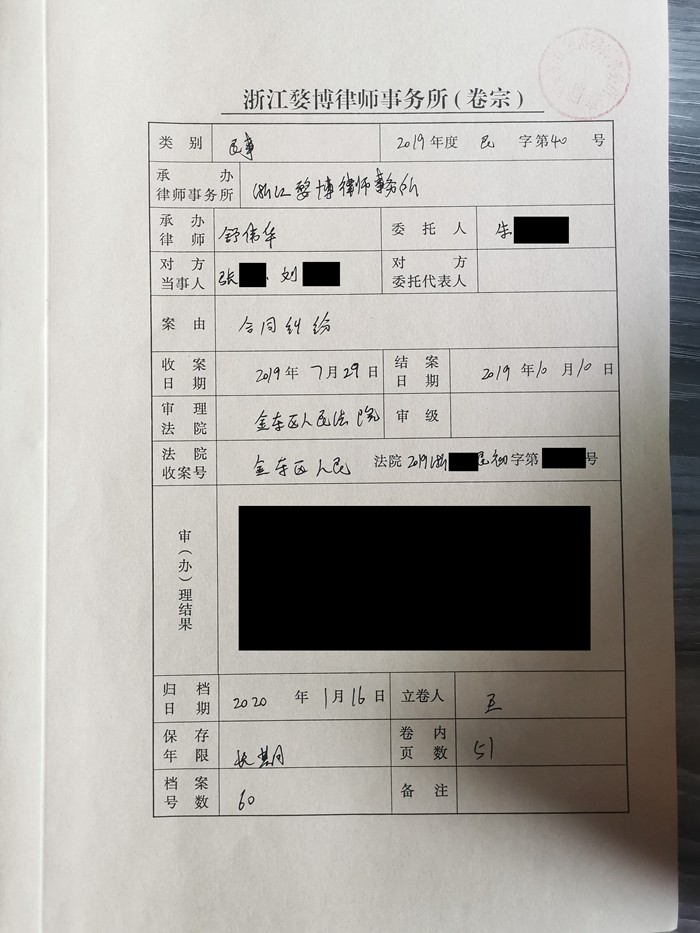 浙江婺博律师事务所(卷宗)
类别 民事 2019年度 民 字第40 号
承办律师事务所 浙江婺博律师事务所
承办律师 舒伟华 委托人 朱
对方当事人 张 、刘 对方委托代表人
案由 合同纠纷
收案日期 2019年7月29日 结案日期 2019年10月10日
审理法院 金东区人民法院 审级
法院收案号 金东区人民 法院 2019浙 民初字第 号
审(办)理结果
归档日期 2020 年 1月16日 立卷人 王
保存年限 长期 卷内页数 51
档案号数 60 备注